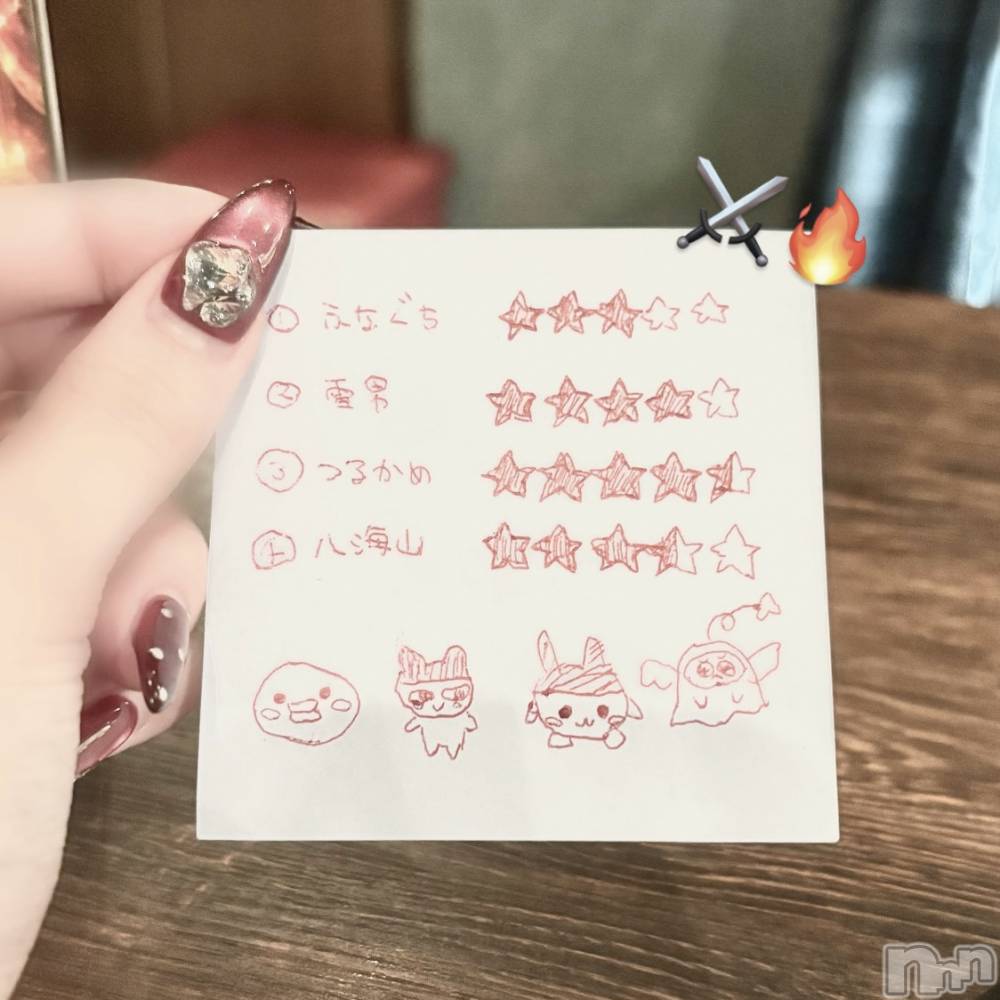 ① ふなぐち ★★★☆☆
② 雪男 ★★★★☆
③ つるかめ
④ 八海山
nnn